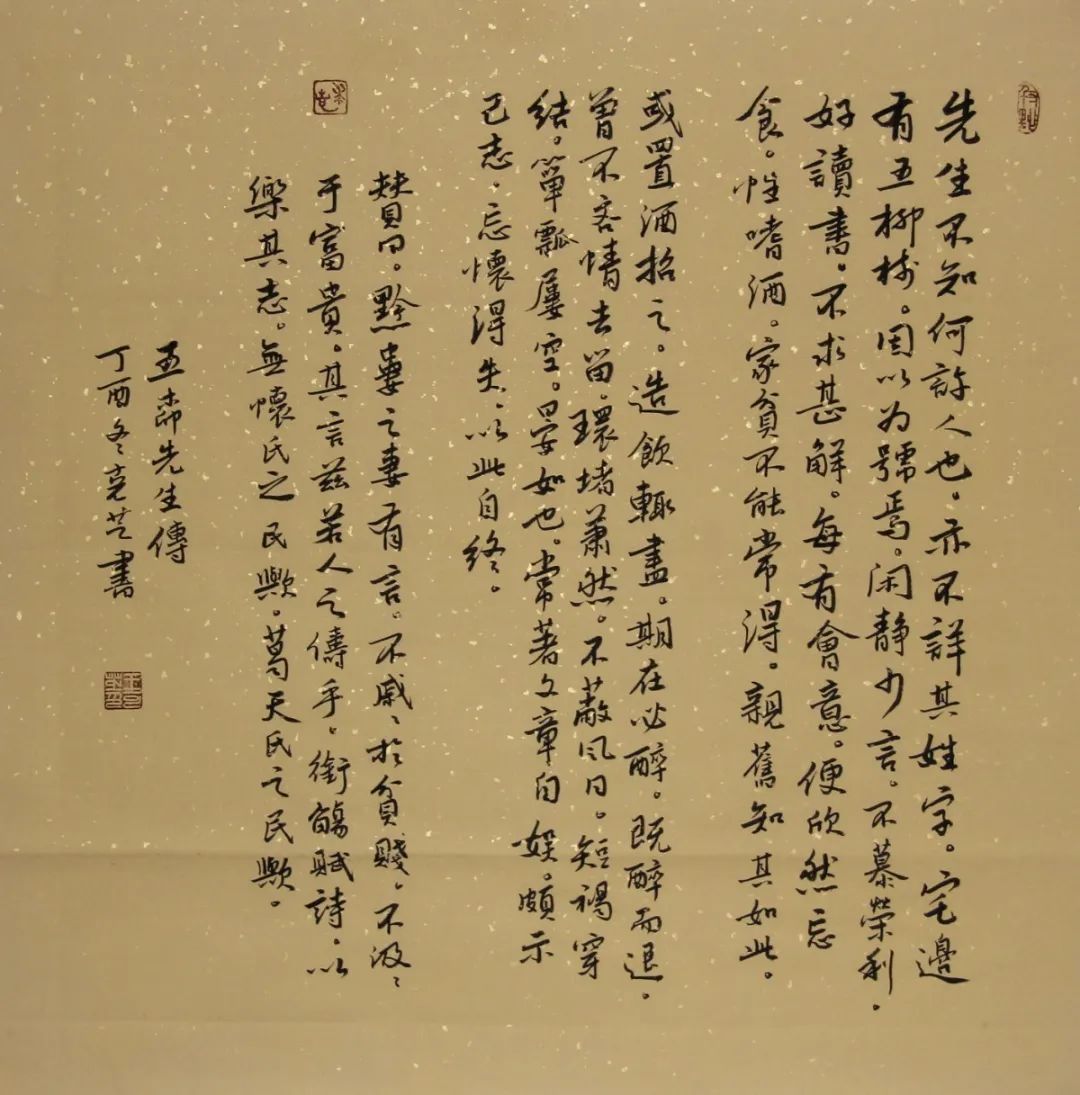 先生不知何許人也。亦不詳其姓字。宅邊
有五柳樹。因以为號焉。闲静少言。不慕榮利。
好讀書。不求甚解。每有會意。便欣然忘
食。性嗜酒。家貧不能常得。親舊知其如此。
或置酒招之。造飲輒盡。期在必醉。既醉而退。
曾不吝情去留。環堵蕭然。不蔽风日。短褐穿
结。簞瓢屢空。晏如也。常著文章自娱。頗示
己志。忘懷得失。以此自终。
贊曰。黔婁之妻有言。不戚、於貧賤。不汲、
于富貴。其言兹若人之儔乎。銜觴賦詩。以
樂其志。無懷氏之民歟。葛天氏之民歟。
五柳先生傳
丁酉冬亮芝書